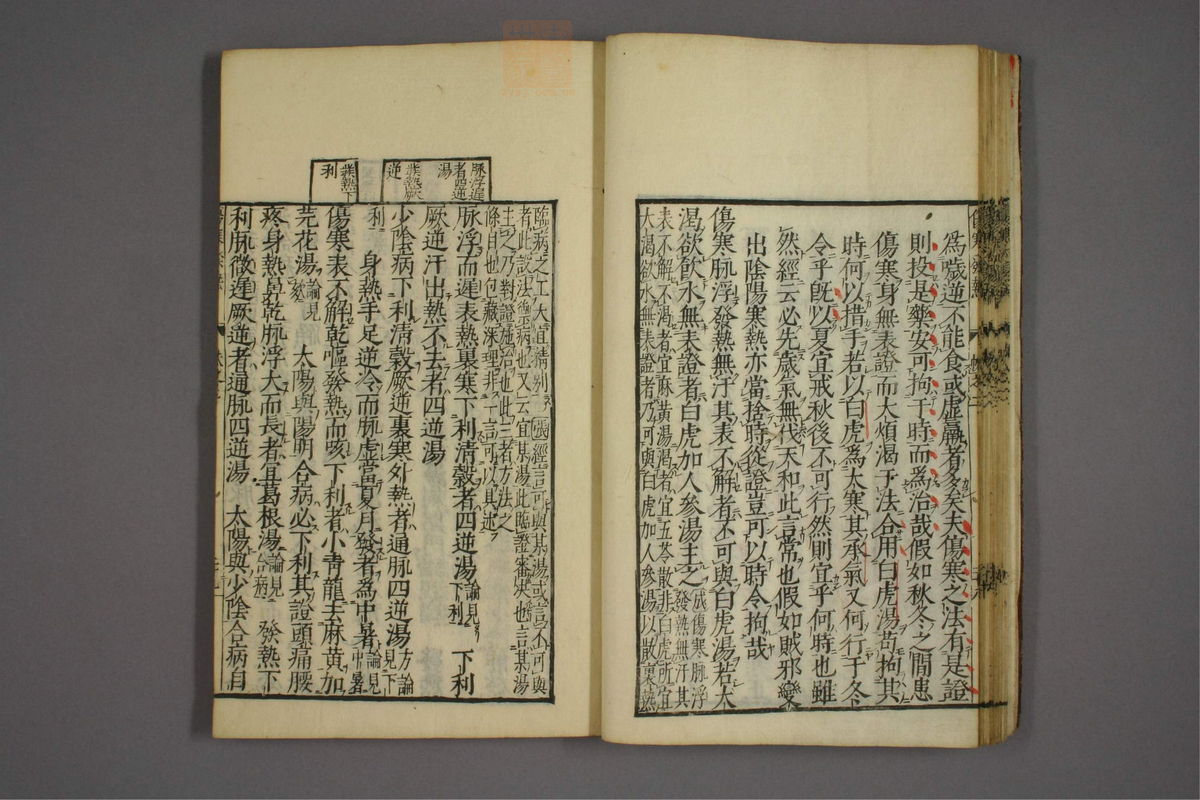 為噦逆不能食或虛羸者多矣夫傷寒之法有是證
則投是藥安可拘于時而為治哉假如秋冬之間患
傷寒身無表證而大煩渴于法合用白虎湯苟拘其
時何以措手若以白虎為大寒其承氣又何行于冬
令乎既以夏宜戒秋後不可行然則宜乎何時也雖
然經云必先歲氣無伐天和此言常也假如賊邪變
出陰陽寒熱亦當捨時從證豈可以時令拘哉
傷寒脉浮發熱無汗其表不解者不可與白虎湯若大
渴欲飲水無表證者白虎加人參湯主之
成傷寒脉浮
發熱無汗其
表不解不渴者宜麻黃湯渴者宜五苓散非白虎所宜
大渴欲水無表證者乃可與白虎加人參湯以散裏熱
脉浮遲
者四逆
湯
發熱厥
逆
發熱下
利
臨病之工大宜精別
張經言可與某湯或言不可與
者此設法禦病也又云宜某湯此臨證審決也言某湯
主之乃對證施治也此三者方法之
條目也包藏深理非一言可以具述
脉浮而遲表熱裏寒下利清穀者四逆湯
論見
下利
下利
厥逆汗出熱不去者四逆湯
少陰病下利清穀厥逆裏寒外熱者通脉四逆湯
方論
見下
利
身熱手足逆冷而脉虛當夏月發者為中暑
論見
中暑
傷寒表不解乾嘔發熱而咳下利者小青龍去麻黃加
芫花湯
論見
欬
太陽與陽明合病必下利其證頭痛腰
疼身熱鼻乾脉浮大而長者宜葛根湯
論見
合病
發熱下
利脉微遲厥逆者通脉四逆湯
太陽與少陰合病自